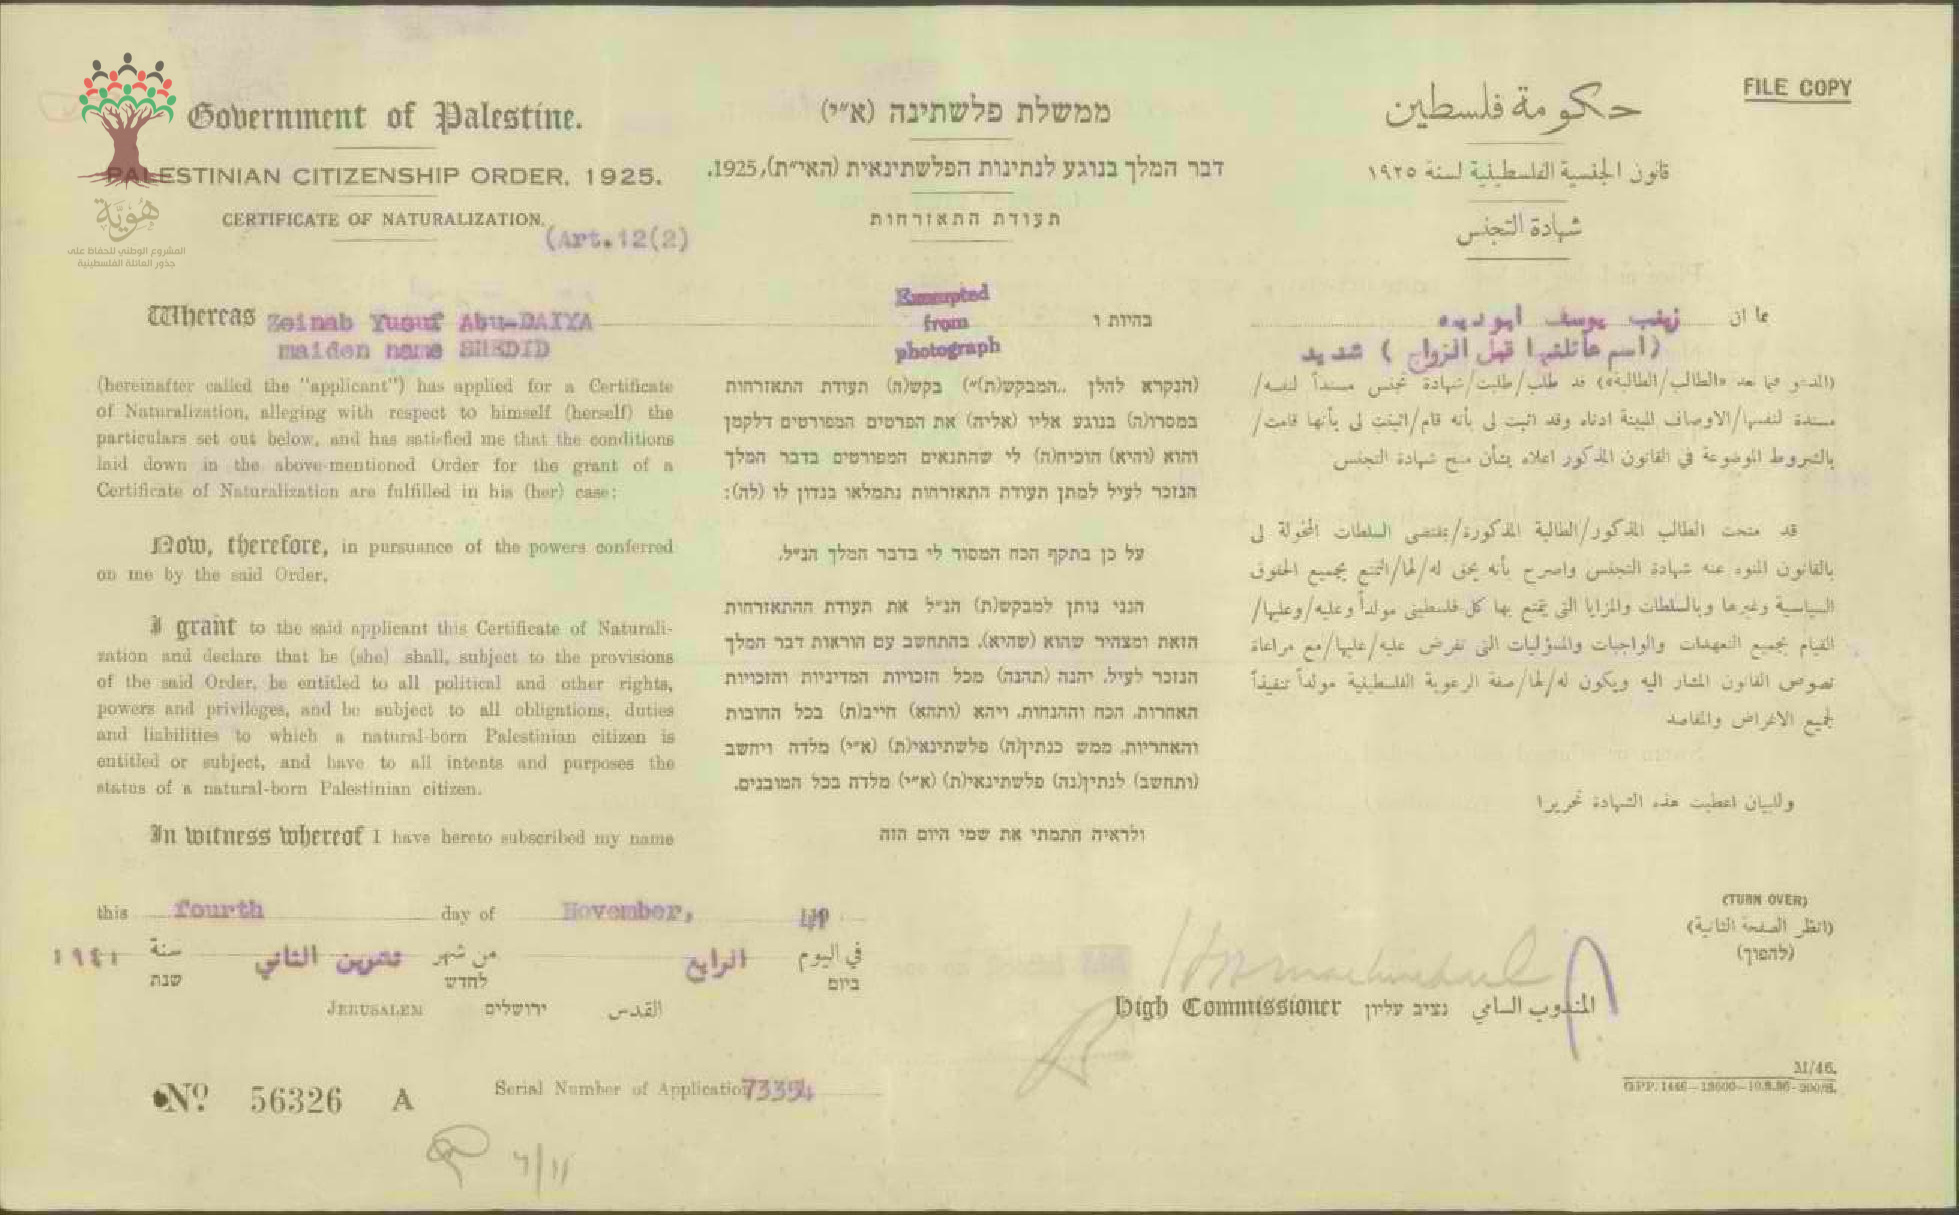 FILE COPY
Government of Palestine.
PALESTINIAN CITIZENSHIP ORDER, 1925.
CERTIFICATE OF NATURALIZATION.
(Art.12(2)
هُوِيَّة
المشروع الوطني للحفاظ على
جذور العائلة الفلسطينية
Whereas Zeinab Yusuf Abu-DAIYA
maiden name SHEDID
(hereinafter called the "applicant") has applied for a Certificate
of Naturalization, alleging with respect to himself (herself) the
particulars set out below, and has satisfied me that the conditions
laid down in the above-mentioned Order for the grant of a
Certificate of Naturalization are fulfilled in his (her) case:
Now, therefore, in pursuance of the powers conferred
on me by the said Order,
I grant to the said applicant this Certificate of Naturali-
zation and declare that he (she) shall, subject to the provisions
of the said Order, be entitled to all political and other rights,
powers and privileges, and be subject to all obligations, duties
and liabilities to which a natural-born Palestinian citizen is
entitled or subject, and have to all intents and purposes the
status of a natural-born Palestinian citizen.
In witness whereof I have hereto subscribed my name
ממשלת פלשתינה (א״י)
דבר המלך בנוגע לנתינות הפלשתינאית (האי״ת), 1925.
תעודת התאזרחות
Exempted
from
photograph
בהיות ו
(הנקרא להלן ,,המבקש(ת)״) בקש(ה) תעודת התאזרחות
במסרו(ה) בנוגע אליו (אליה) את הפרטים המפורטים דלקמן
והוא (והיא) הוכיח(ה) לי שהתנאים המפורטים בדבר המלך
הנזכר לעיל למתן תעודת התאזרחות נתמלאו בנדון לו (לה):
על כן בתקף הכח המסור לי בדבר המלך הנ״ל,
הנני נותן למבקש(ת) הנ״ל את תעודת ההתאזרחות
הזאת ומצהיר שהוא (שהיא), בהתחשב עם הוראות דבר המלך
הנזכר לעיל, יהנה (תהנה) מכל הזכויות המדיניות והזכויות
האחרות, הכח וההנחות, ויהא (ותהא) חייב(ת) בכל החובות
והאחריות, ממש כנתין(ה) פלשתינאי(ת) (א״י) מלדה ויחשב
(ותחשב) לנתין(נה) פלשתינאי(ת) (א״י) מלדה בכל המובנים.
ולראיה חתמתי את שמי היום הזה
حكومة فلسطين
قانون الجنسية الفلسطينية لسنة ١٩٢٥
شهادة التجنس
بما ان زينب يوسف ابو ديه
(اسم عائلتها قبل الزواج) شديد
(المدعو فيما بعد «الطالب/الطالبة») قد طلب/طلبت/شهادة تجنس مسنداً لنفسه/
مسندة لنفسها/الاوصاف المبينة ادناه وقد اثبت لي بأنه قام/اثبتت لي بأنها قامت/
بالشروط الموضوعة في القانون المذكور اعلاه بشأن منح شهادة التجنس
قد منحت الطالب المذكور/الطالبة المذكورة/بمقتضى السلطات المخولة لي
بالقانون المنوه عنه شهادة التجنس واصرح بأنه يحق له/لها/التمتع بجميع الحقوق
السياسية وغيرها وبالسلطات والمزايا التي يتمتع بها كل فلسطيني مولداً وعليه/وعليها/
القيام بجميع التعهدات والواجبات والمسؤليات التي تفرض عليه/عليها/مع مراعاة
نصوص القانون المشار اليه ويكون له/لها/صفة الرعوية الفلسطينية مولداً تنفيذاً
لجميع الاغراض والمقاصد
وللبيان اعطيت هذه الشهادة تحريرا
this fourth day of November,
في اليوم الرابع من شهر تشرين الثاني سنة ١٩٤١
ביום לחדש שנת
JERUSALEM ירושלים القدس
High Commissioner נציב עליון المندوب السامي
(TURN OVER)
(انظر الصفحة الثانية)
(להפוך)
No. 56326 A
Serial Number of Application 73354
M/46.
7/11